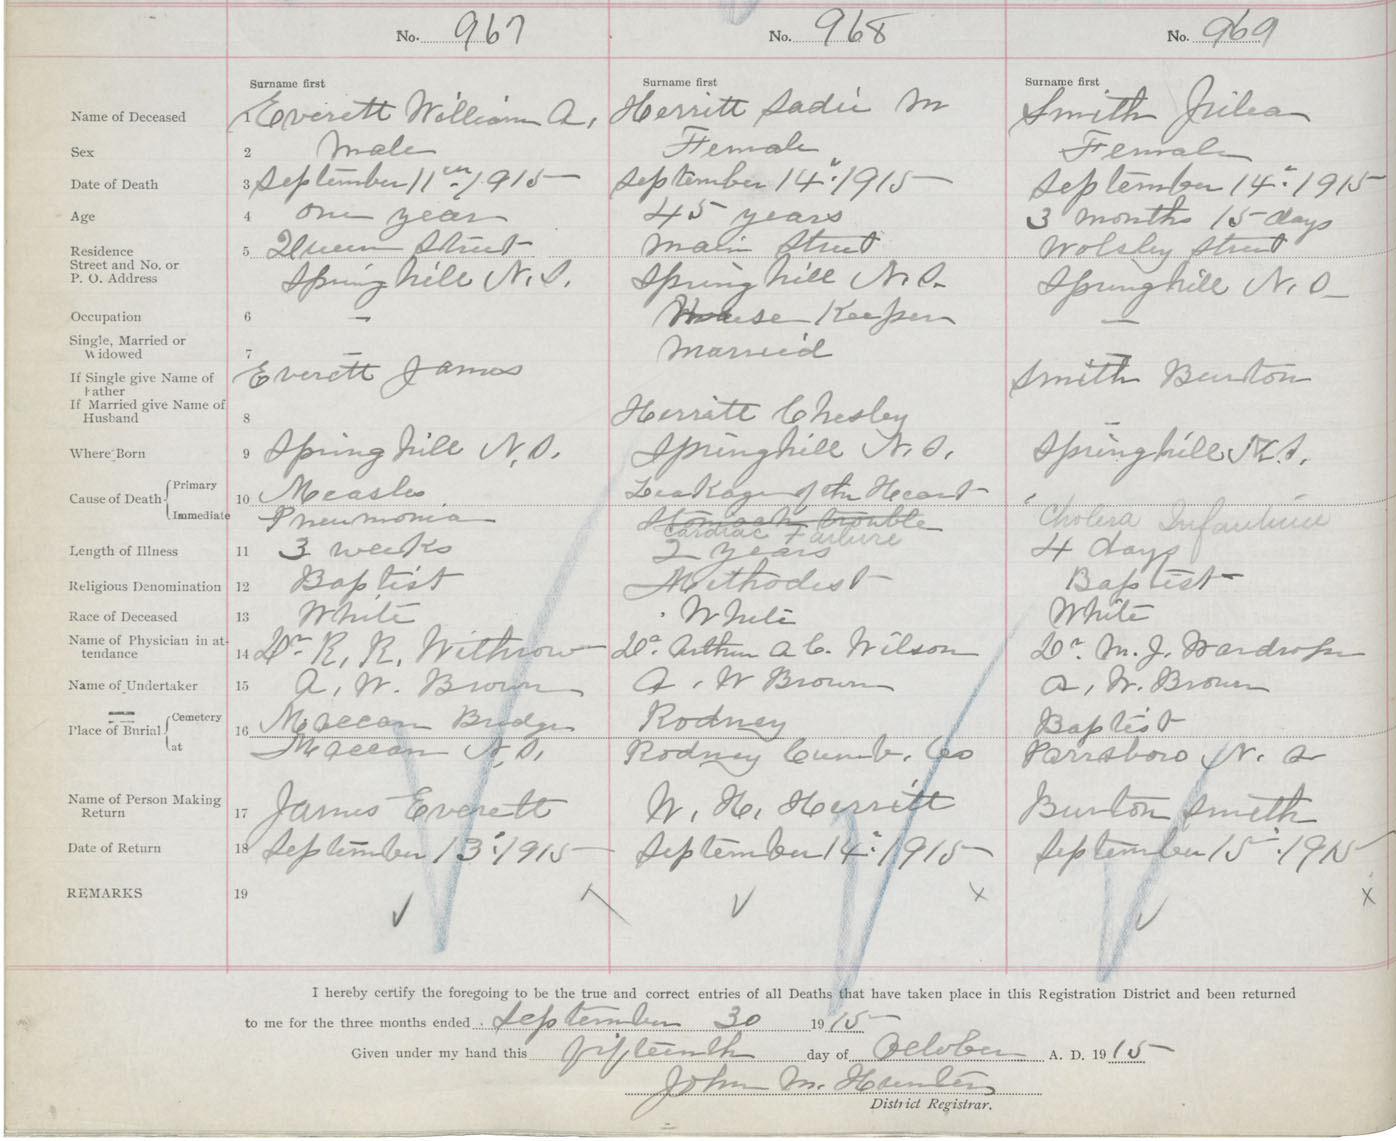 No. 967 No. 968 No. 969
Surname first Surname first Surname first
Name of Deceased 1 Everett William A. Herritt Sadie M Smith
Sex 2 Male Female Female
Date of Death 3 September 11th 1915 September 14" 1915 September 14" 1915
Age 4 one year 45 years 3 months 15 days
Residence 5 Queen Street Main Street Wolsley Street
Street and No. or
P. O. Address Springhill N.S. Springhill N.S. Springhill N.S.
Occupation 6 — House Keeper —
Single, Married or
Widowed 7 — Married —
If Single give Name of Everett James Smith Burton
Father
If Married give Name of
Husband 8 Herritt Chesley –
Where Born 9 Springhill N.S. Springhill N.S. Springhill N.S.
Cause of Death Primary 10 Measles Leakage of the Heart
Immediate Pneumonia Stomach trouble Cholera Infantum
Cardiac Failure
Length of Illness 11 3 weeks 2 years 4 days
Religious Denomination 12 Baptist Methodist Baptist
Race of Deceased 13 White White White
Name of Physician in at-
tendance 14 Dr. R. R. Withrow Dr. Arthur A C. Wilson Dr. M. J. Wardrope
Name of Undertaker 15 A. W. Brown A. W Brown A. W. Brown
Place of Burial Cemetery 16 Maccan Bridge Rodney Baptist
at Maccan N.S. Rodney Cumb. Co Parrsboro N. S
Name of Person Making
Return 17 James Everett W. H. Herritt Burton Smith
Date of Return 18 September 13" 1915 September 14" 1915 September 15" 1915
REMARKS 19
I hereby certify the foregoing to be the true and correct entries of all Deaths that have taken place in this Registration District and been returned
to me for the three months ended September 30 1915
Given under my hand this fifteenth day of October A. D. 1915
John M. Hunter
District Registrar.